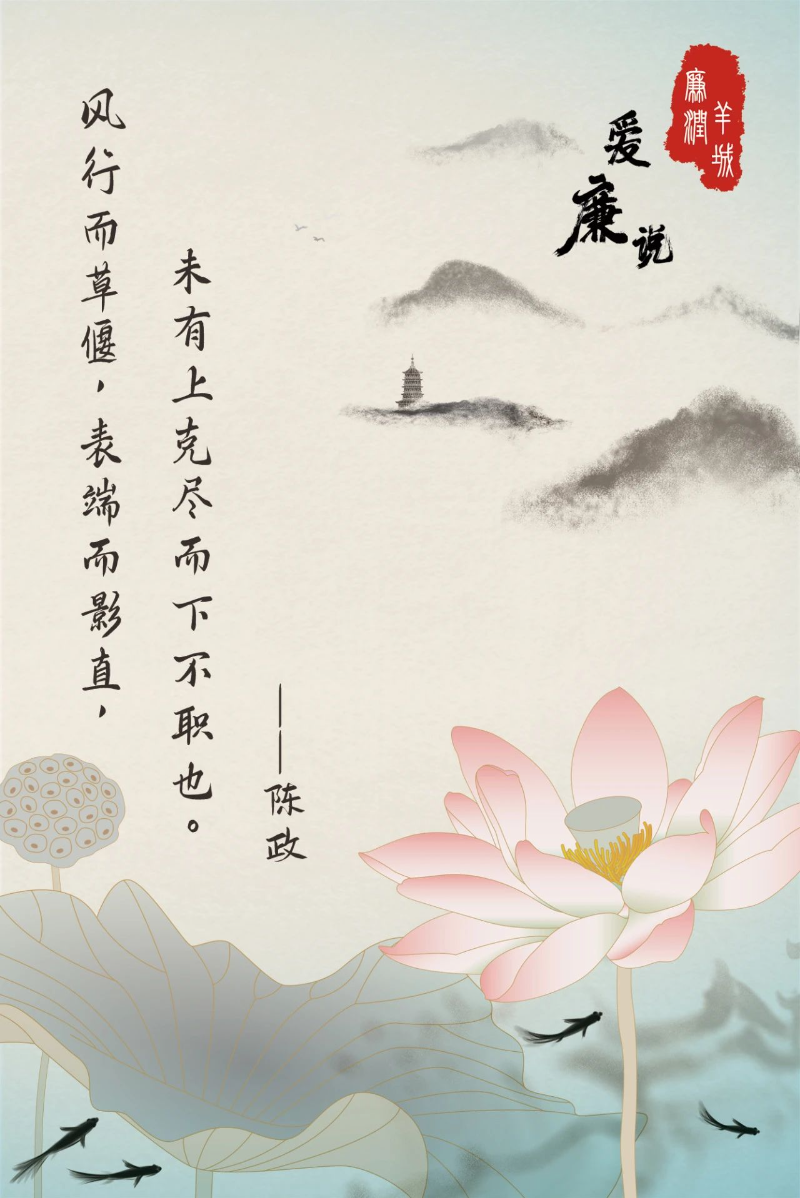 廉潤
羊城
爱廉说
风行而草偃，表端而影直，
未有上克尽而下不职也。
——陈政